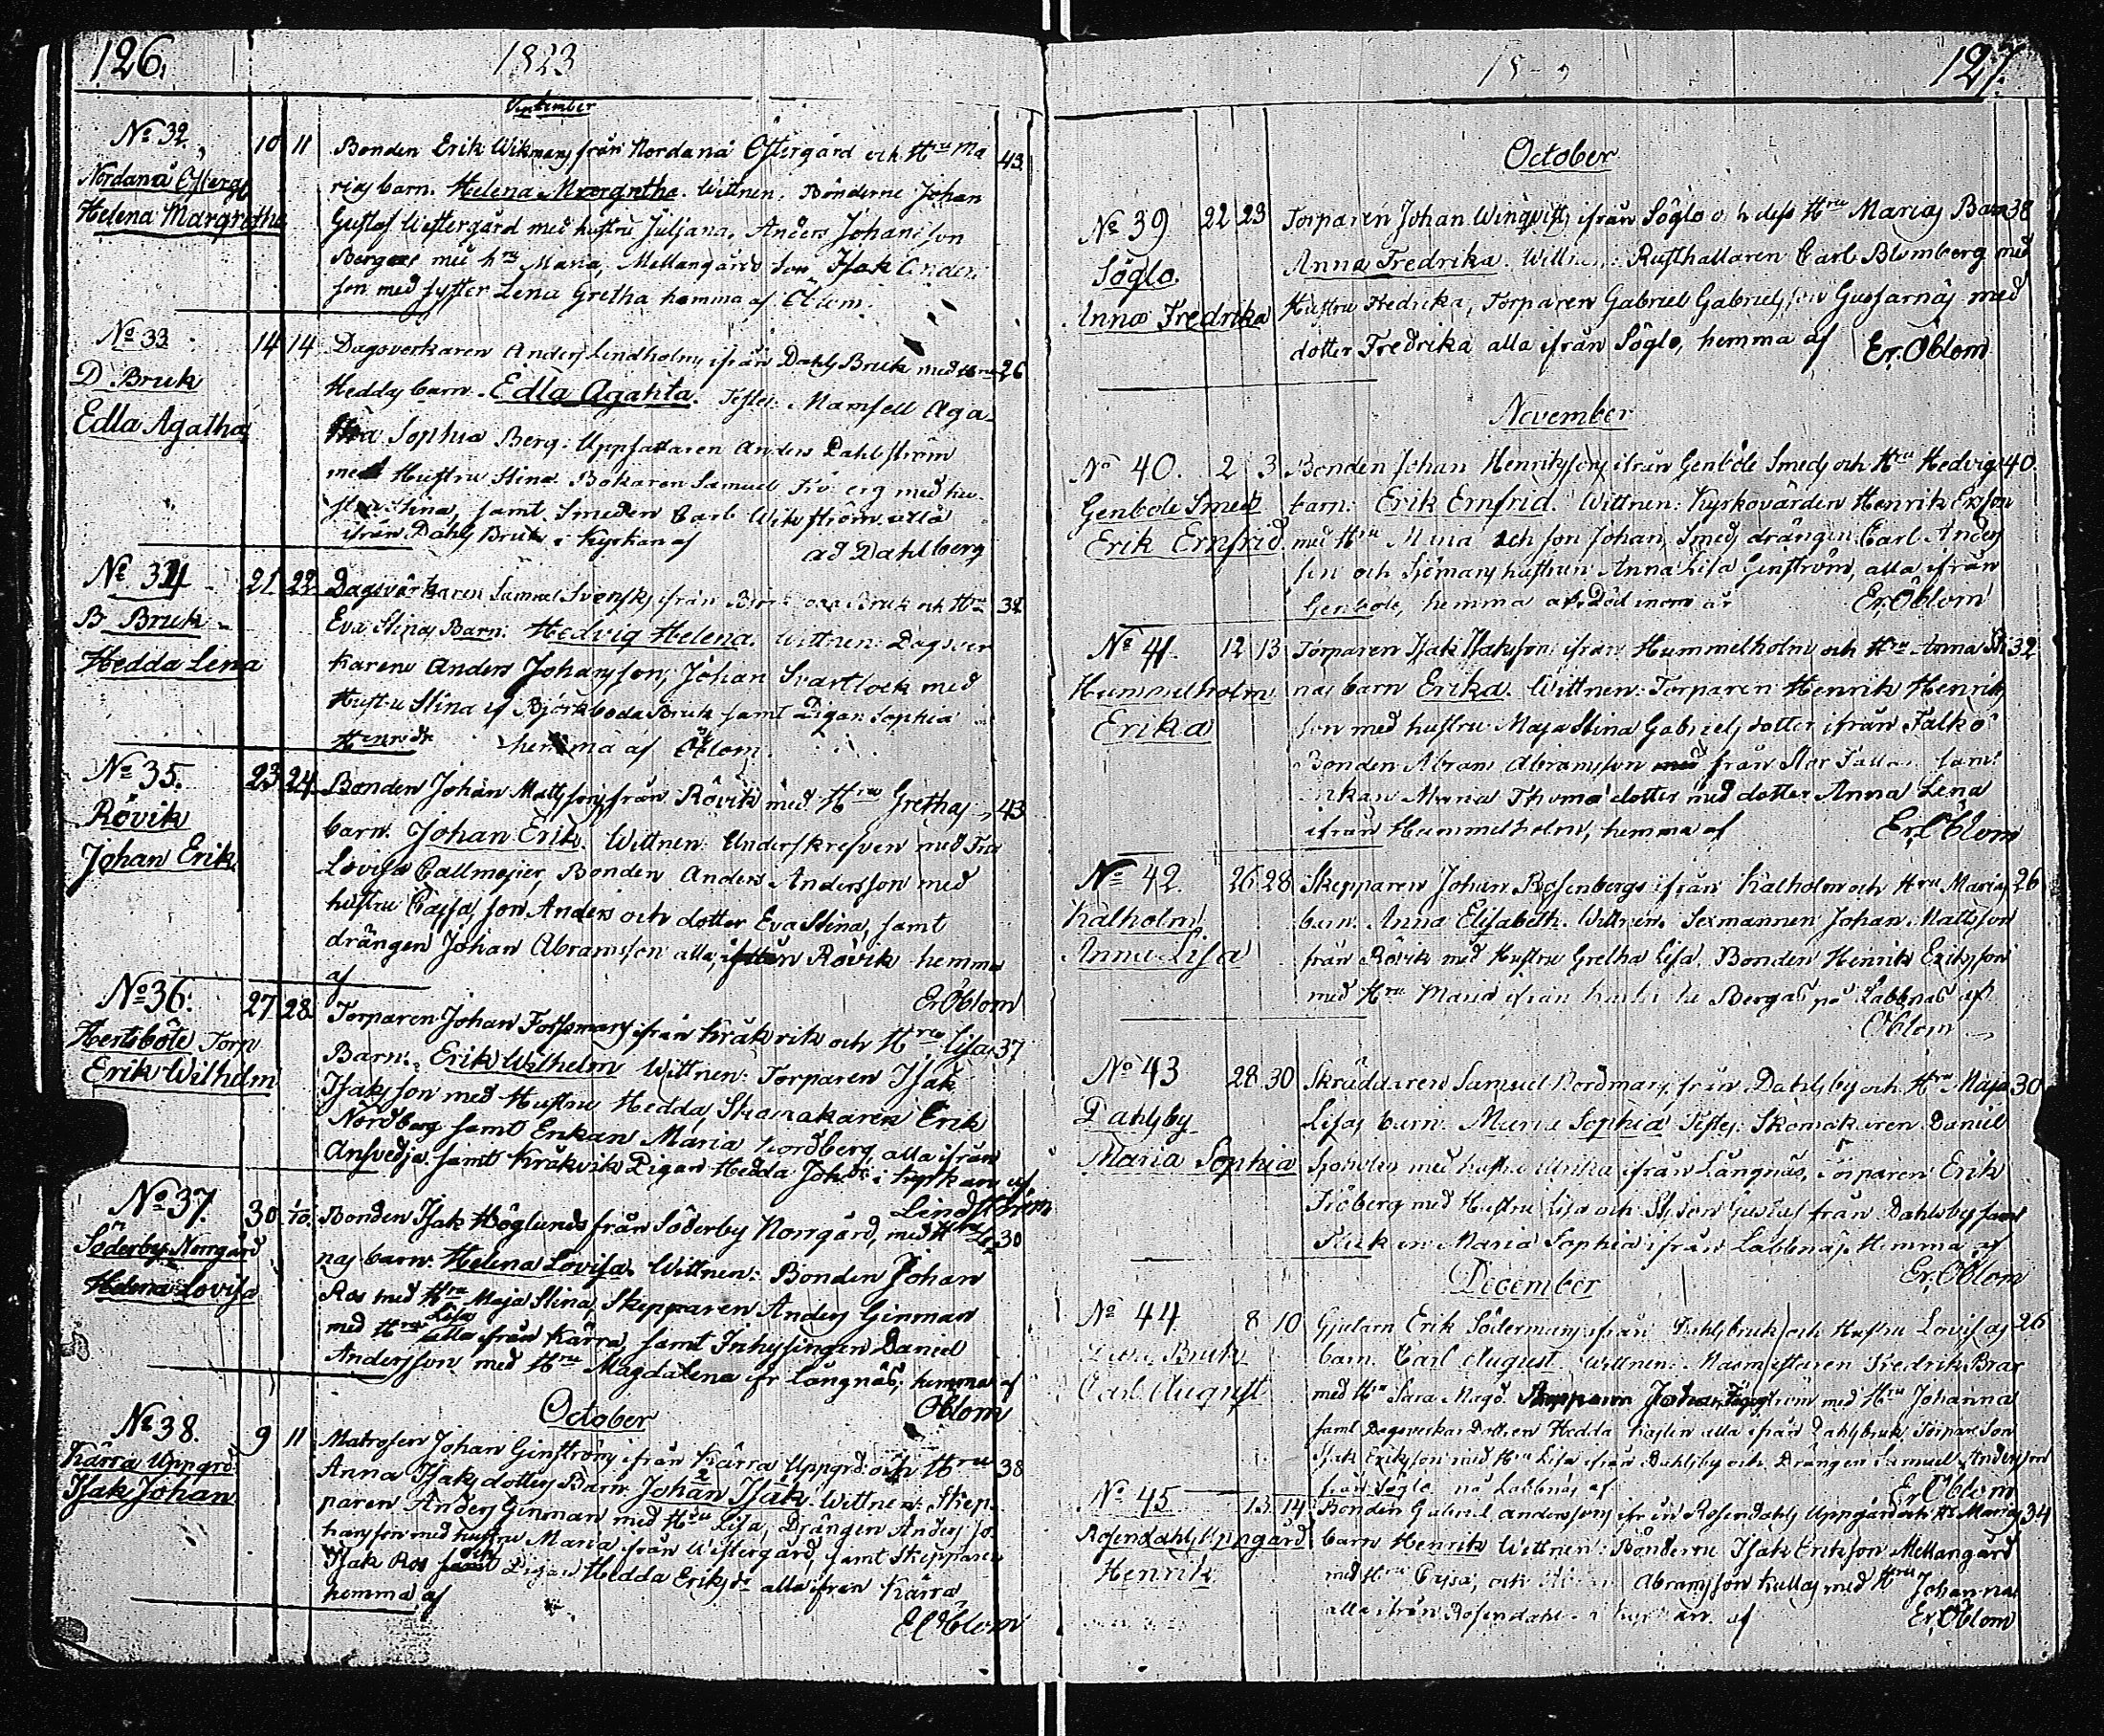 126.
1823
September
No 32.
Nordanå Österg.
Helena Margretha
10 11
Bonden Erik Wikmans från Nordanå Östergård och Hru Ma 43
rias barn. Helena Margretha. Wittnen. Bönderne Johan
Gustaf Westergård med hustru Juljana. Anders Johansson
Bergars med hru Maria, Mellangårds Son Isak Anders
son med syster Lena Gretha hemma af Öblom.
No 33
D. Bruk
Edla Agatha
14 14
Dagsverkaren Anders Lindholms ifrån Dahls Bruk med Hru 26
Heddas barn. Edla Agahta. Testes. Mamsell Aga
tha Sophia Berg. Uppsattaren Anders Dahlström
med Hustru Stina. Bokaren Samuel med hu
stru Stina, samt Smeden Carl Wikström alla
ifrån Dahls Bruk i Kyrkan af ad Dahlberg
No 34
B Bruk
Hedda Lena
21. 22.
Dagsvärkaren Samuel Svensks ifrån Bruk och Hru 32
Eva Stinas Barn: Hedvig Helena. Wittnen: Dagsver
karene Anders Johansson, Johan Svartlock med
Hustru Stina if Björkboda Bruk samt Pigan Sophia
Henrdr hemma af Öblom.
No 35.
Rövik
Johan Erik
23 24
Bonden Johan Mattssons från Rövik med Hru Grethas 43
barn. Johan Erik. Wittnen: Underskrefven med Fru
Lovisa Callmejier, Bonden Anders Andersson med
hustru Cajsa, son Anders och dotter Eva Stina, samt
drängen Johan Abramsson alla ifrån Rövik hemma
af Er. Öblom
No 36.
Hertsböle Torp
Erik Wilhelm
27 28
Torparen Johan Forssmans ifrån Kråkvik och Hru Lisas 37
Barn: Erik Wilhelm Wittnen: Torparen Isak
Isaksson med Hustru Hedda, Skomakaren Erik
Nordberg samt Enkan Maria Nordberg alla ifrån
Ansvedja samt Kråkvik Pigan Hedda Johdr i kyrkan af
Lindström
No 37.
Söderby Norrgård
Helena Lovisa
30 1/10.
Bonden Isak Höglunds från Söderby Norrgård, med Hru Le 30
nas barn: Helena Lovisa. Wittnen: Bonden Johan
Ros med Hru Maja Stina, Skepparen Anders Ginman
med Hru Lisa alla ifrån Kärra, samt Inhysingen Daniel
Andersson med Hru Magdalena ifr Långnäs, hemma af
Öblom
October
No 38.
Kärra Uppgrd
Isak Johan
9 11
Matrosen Johan Ginströms ifrån Kärra Uppgrd och Hru 38
Anna Isaks dotters Barn: Johan Isak. Wittnen: Skep
paren Anders Ginman med Hru Lisa, Drängen Anders Jo
hansson med hustru Maria ifrån Westergård, samt Skepparen
Isak Ros och Pigan Hedda Eriksdr alla ifrån Kärra
hemma af
Er Öblom
127.
October
No 39
Söglo.
Anna Fredrika
22 23
Torparen Johan Winqvists ifrån Söglo och dess Hru Marias Barn 38
Anna Fredrika. Wittnen: Rusthållaren Carl Blomberg med
Hustru Fredrika, Torparen Gabriel Gabrielsson Gussarnäs med
dotter Fredrika alla ifrån Söglo, hemma af Er. Öblom
November
No 40.
Genböle Smeds
Erik Ernfrid
2 3
Bonden Johan Henrikssons ifrån Genböle Smeds och Hru Hedvigs 40.
barn: Erik Ernfrid. Wittnen: Kyrkovärden Henrik Erson
med Hru Mina och son Johan, Smeds drängen Carl Anders
son och Sjömans hustrun Anna Lisa Genström, alla ifrån
Genböle, hemma af. Död inom år Er. Öblom
No 41.
Hummelholm
Erika
12 13
Torparen Isak Isaksson ifrån Hummelholm och Hru Anna Sti 32
nas barn Erika. Wittnen: Torparen Henrik Henriks
son med hustru Maja Stina Gabriels dotter ifrån Falkö
Bonden Abram Abramsson från Stor samt
Enkan Maria Thomas dotter med dotter Anna Lena
ifrån Hummelholm, hemma af Er. Öblom
No 42.
Kålholm.
Anna Lisa
26 28
Skepparen Johan Rosenbergs ifrån Kålholm och Hru Marias 26
barn. Anna Elisabeth. Wittnen. Sexmannen Johan Mattsson
från Rövik med Hustru Gretha Lisa, Bonden Henrik Eriksson
med Hru Maria ifrån Bergas på Labbnäs af
Öblom
No 43
Dahlsby
Maria Sophia
28 30
Skräddaren Samuel Nordmans från Dahlsby och Hru Maja 30
Lisas barn. Maria Sophia Testes. Skomakaren Daniel
med hustru ifrån Långnäs, Torparen Erik
Fröberg med Hustru Lisa och Gustaf från Dahlsby samt
Maria Sophia ifrån Labbnäs. Hemma af
Er. Öblom
December
No 44
Bruk
Carl August
8 10
Gjutarn Erik Södermans ifrån Dahlsbruk och Hustru Lovisas 26
barn. Carl August Wittnen: Masmästaren Fredrik Brax
med Hru Sara Magd. Skepparen Johan med Hru Johanna
samt Dagsverkar Dottren Hedda alla ifrån Dahlsbruk, Torpar Son
Isak Eriksson med Hru Lisa ifrån Dahlsby och Drängen Samuel Andersson
från Söglo på Labbnäs af Er. Öblom
No 45
Rosendahl Uppgård
Henrik
13. 14
Bonden Gabriel Anderssons ifrån Rosendahls Uppgård och Hru Marias 34
barn Henrik Wittnen: Bönderne Isak Erikson Mellangård
med Hru Cajsa, och Abramsson Kullas med Hru Johanna
alla ifrån Rosendahl i kyrkan af Er. Öblom